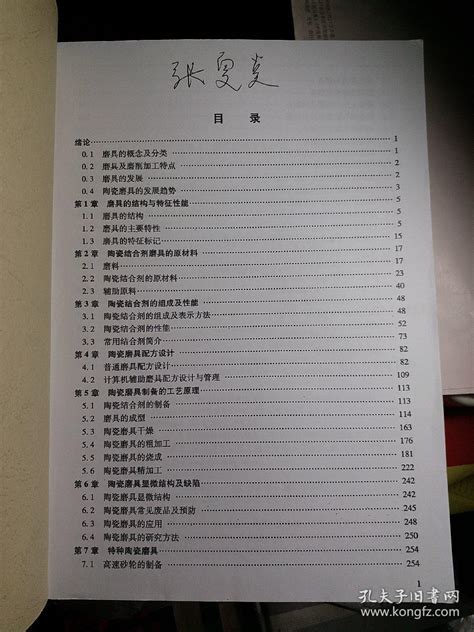 张
目 录
绪论 1
0.1 磨具的概念及分类 1
0.2 磨具及磨削加工特点 2
0.3 磨具的发展 2
0.4 陶瓷磨具的发展趋势 3
第1章 磨具的结构与特征性能 5
1.1 磨具的结构 5
1.2 磨具的主要特性 5
1.3 磨具的特征标记 15
第2章 陶瓷结合剂磨具的原材料 17
2.1 磨料 17
2.2 陶瓷结合剂的原材料 23
2.3 辅助原料 40
第3章 陶瓷结合剂的组成及性能 48
3.1 陶瓷结合剂的组成及表示方法 48
3.2 陶瓷结合剂的性能 52
3.3 常用结合剂简介 73
第4章 陶瓷磨具配方设计 82
4.1 普通磨具配方设计 82
4.2 计算机辅助磨具配方设计与管理 109
第5章 陶瓷磨具制备的工艺原理 114
5.1 陶瓷结合剂的制备 113
5.2 磨具的成型 114
5.3 陶瓷磨具干燥 163
5.4 陶瓷磨具的粗加工 176
5.5 陶瓷磨具的烧成 181
5.6 陶瓷磨具精加工 222
第6章 陶瓷磨具显微结构及缺陷 242
6.1 陶瓷磨具显微结构 242
6.2 陶瓷磨具常见废品及预防 245
6.3 陶瓷磨具的应用 248
6.4 陶瓷磨具的研究方法 250
第7章 特种陶瓷磨具 254
7.1 高速砂轮的制备 254
1
孔夫子旧书网
www.kongfz.com